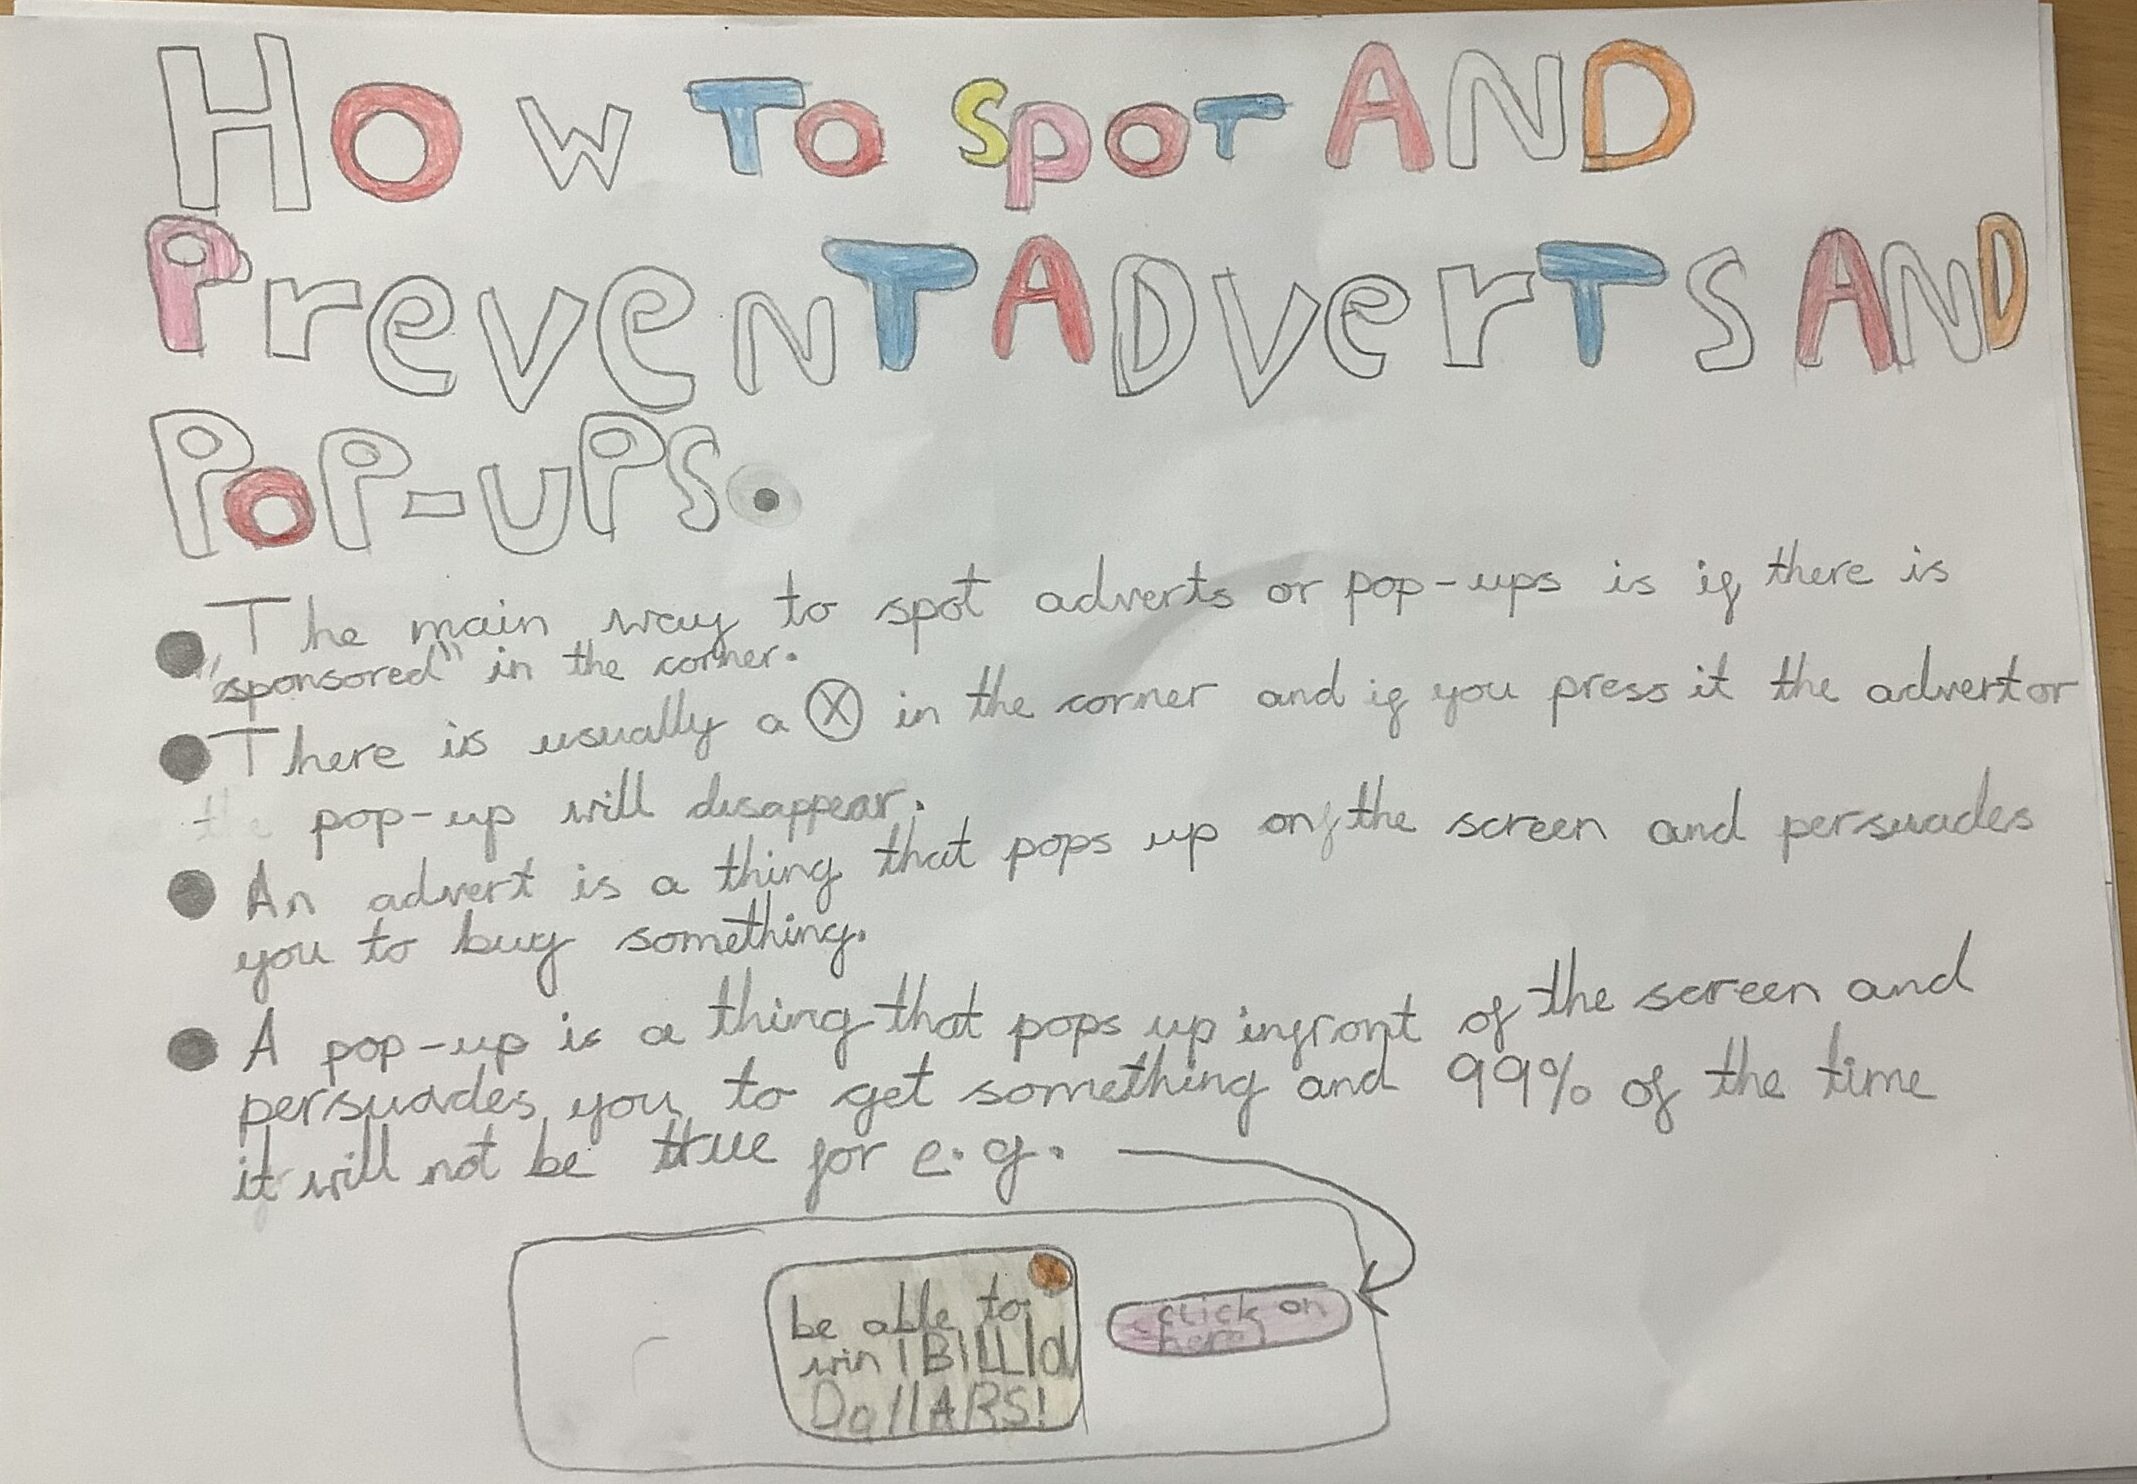 How To Spot AND
Prevent Adverts AND
Pop-ups.
The main way to spot adverts or pop-ups is if there is
"sponsored" in the corner.
There is usually a X in the corner and if you press it the advert or
the pop-up will disappear.
An advert is a thing that pops up on the screen and persuades
you to buy something.
A pop-up is a thing that pops up infront of the screen and
persuades you to get something and 99% of the time
it will not be true for e.g.
be able to
win 1 BILLIO
DollARS!
click on